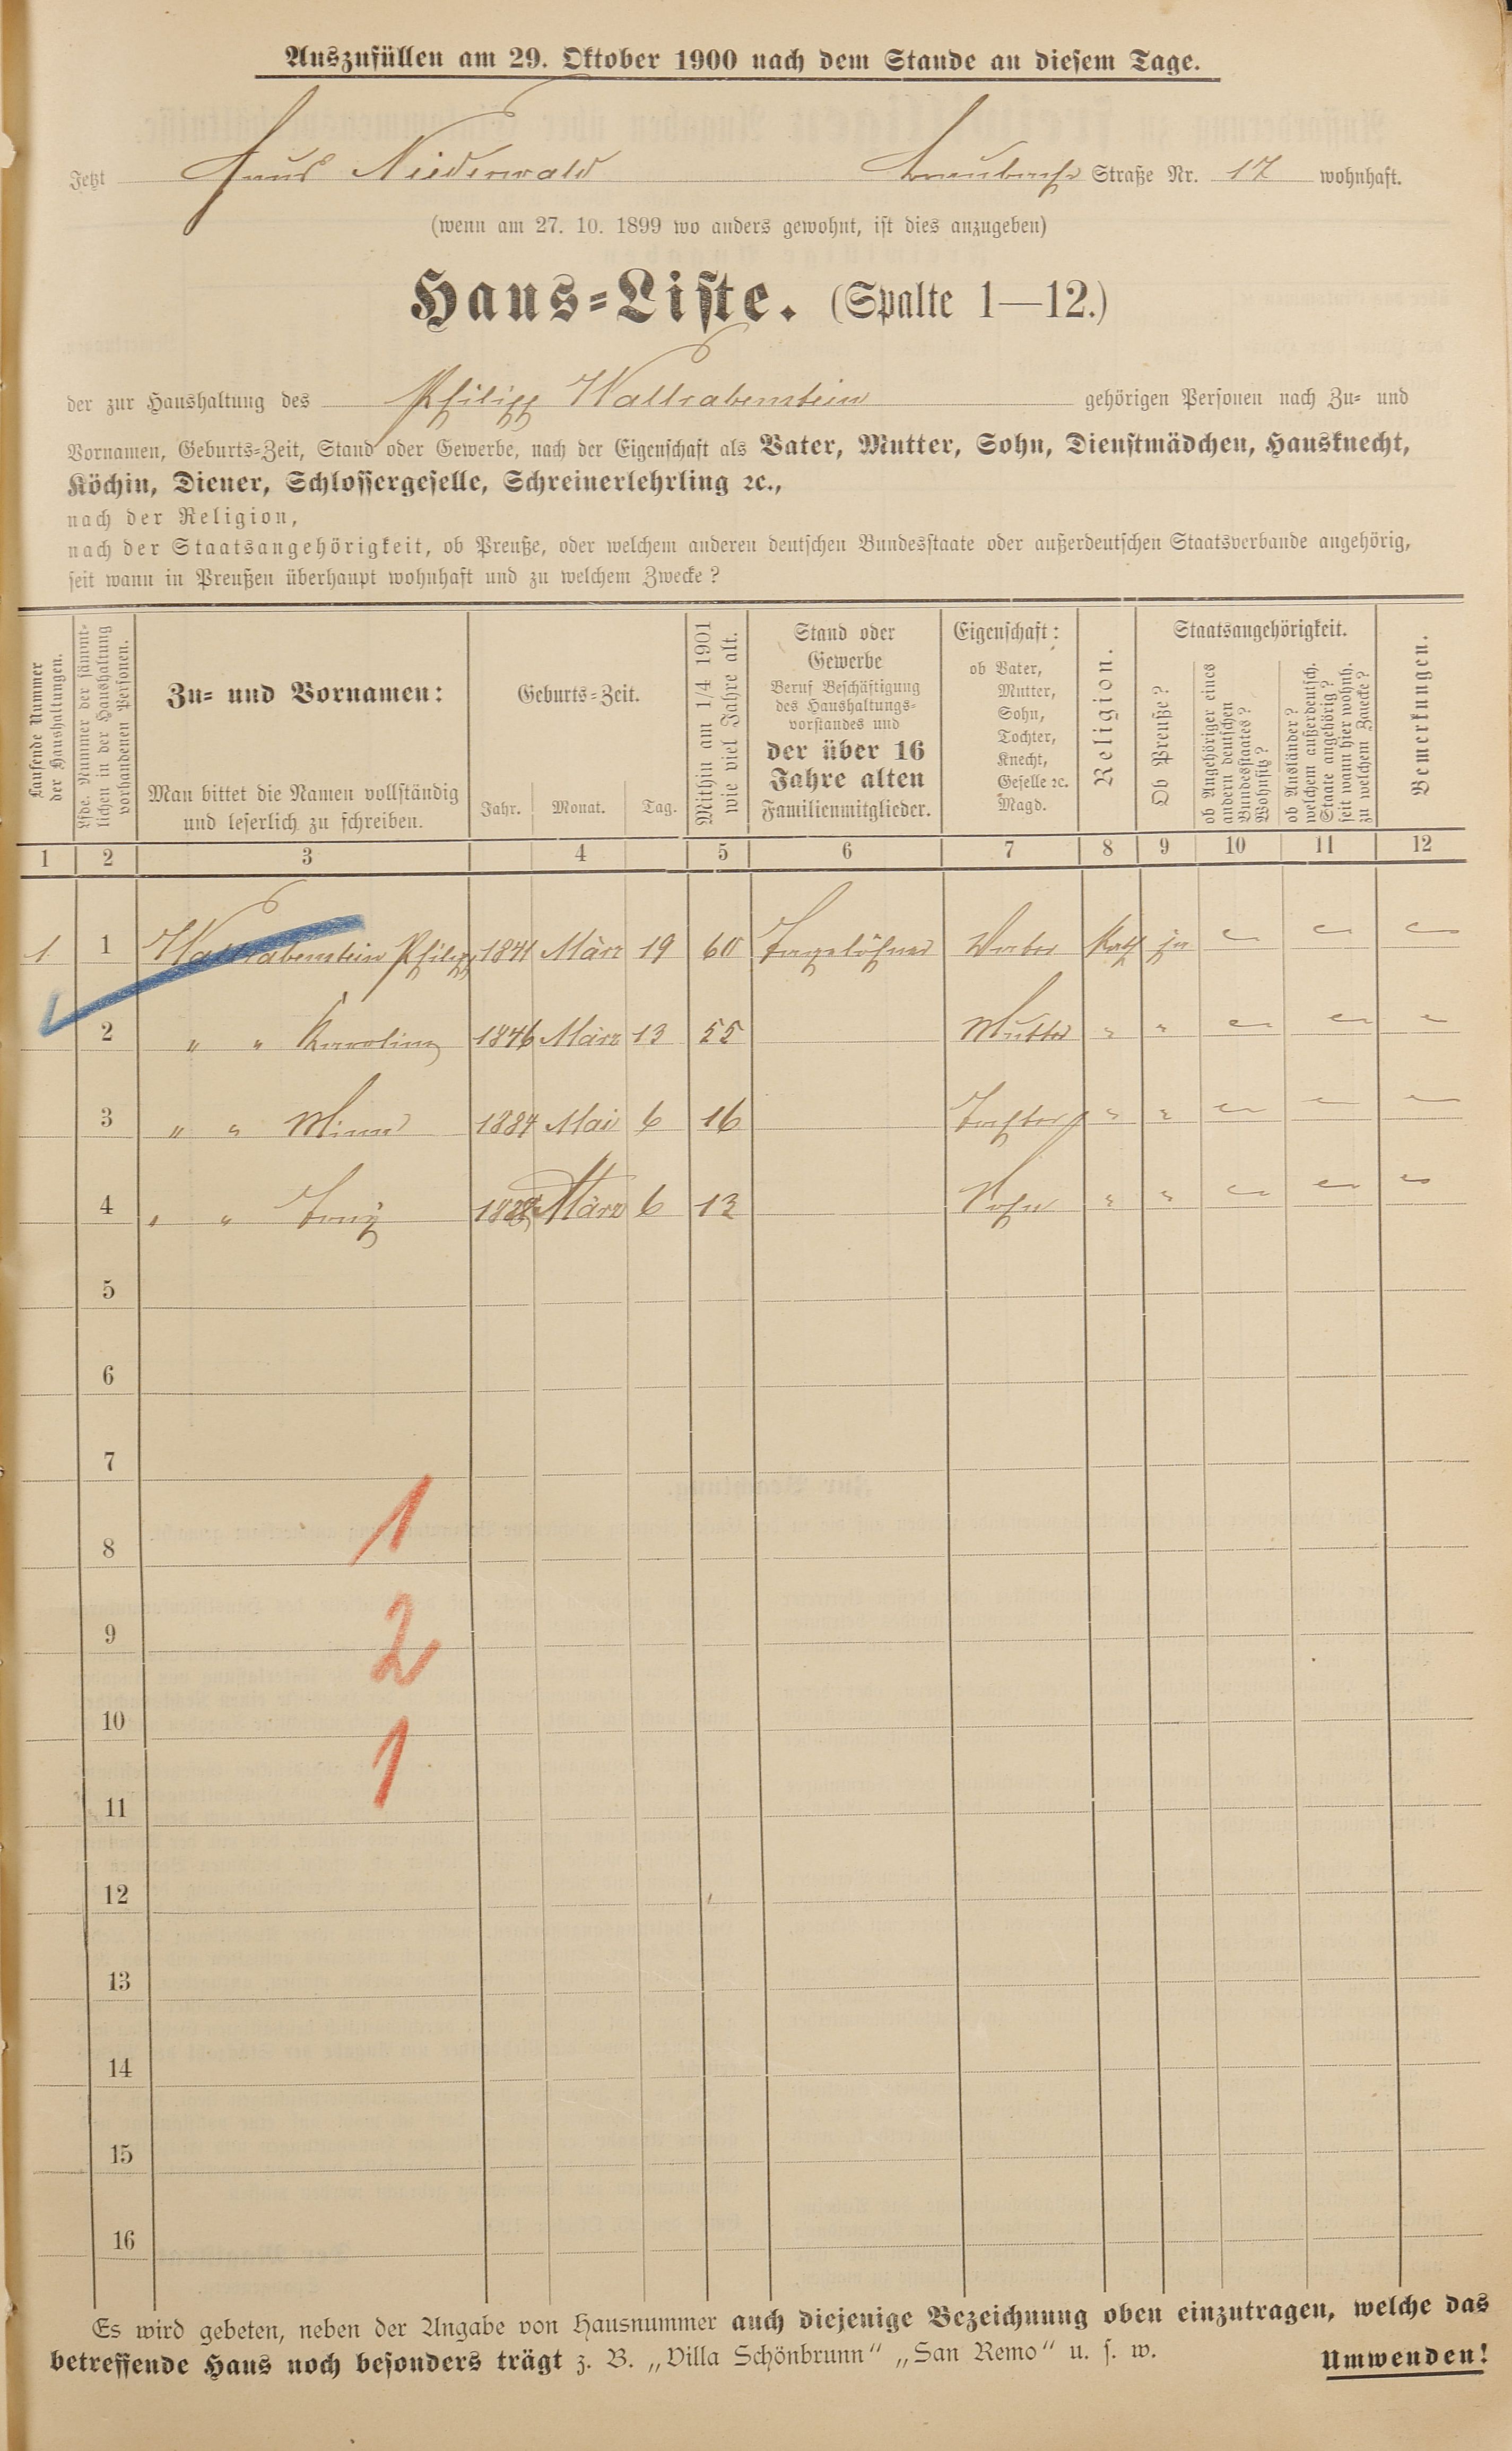 Auszufüllen am 29. Oktober 1900 nach dem Stande an diesem Tage.
Jetzt Haus Niederwald Straße Nr. 17 wohnhaft.
(wenn am 27. 10. 1899 wo anders gewohnt, ist dies anzugeben)
Haus=Liste. (Spalte 1—12.)
der zur Haushaltung des Philipp Wallrabenstein gehörigen Personen nach Zu= und
Vornamen, Geburts=Zeit, Stand oder Gewerbe, nach der Eigenschaft als Vater, Mutter, Sohn, Dienstmädchen, Hausknecht,
Köchin, Diener, Schlossergeselle, Schreinerlehrling ꝛc.,
nach der Religion,
nach der Staatsangehörigkeit, ob Preuße, oder welchem anderen deutschen Bundesstaate oder außerdeutschen Staatsverbande angehörig,
seit wann in Preußen überhaupt wohnhaft und zu welchem Zwecke?
Laufende Nummer
der Haushaltungen.
Lfde. Nummer der sämmt-
lichen in der Haushaltung
vorhandenen Personen.
Zu= und Vornamen:
Man bittet die Namen vollständig
und leserlich zu schreiben.
Geburts=Zeit.
Jahr. Monat. Tag.
Mithin am 1/4 1901
wie viel Jahre alt.
Stand oder
Gewerbe
Beruf Beschäftigung
des Haushaltungs=
vorstandes und
der über 16
Jahre alten
Familienmitglieder.
Eigenschaft:
ob Vater,
Mutter,
Sohn,
Tochter,
Knecht,
Geselle ꝛc.
Magd.
Religion.
Staatsangehörigkeit.
Ob Preuße?
ob Angehöriger eines
andern deutschen
Bundesstaates?
Wohnsitz?
ob Ausländer?
welchem außerdeutsch.
Staate angehörig?
seit wann hier wohnh.
zu welchem Zwecke?
Bemerkungen.
1 2 3 4 5 6 7 8 9 10 11 12
1 1 Wallrabenstein Philipp 1841 März 19 60 Tagelöhner Vater Kath ja — — —
2 " " Karolina 1846 März 13 55 Mutter " " — — —
3 " " Minna 1884 Mai 6 16 Tochter " " — — —
4 " " März 6 13 Sohn " " — — —
5
6
7
1
8
2
9
10
1
11
12
13
14
15
16
Es wird gebeten, neben der Angabe von Hausnummer auch diejenige Bezeichnung oben einzutragen, welche das
betreffende Haus noch besonders trägt z. B. „Villa Schönbrunn" „San Remo" u. s. w. Umwenden!